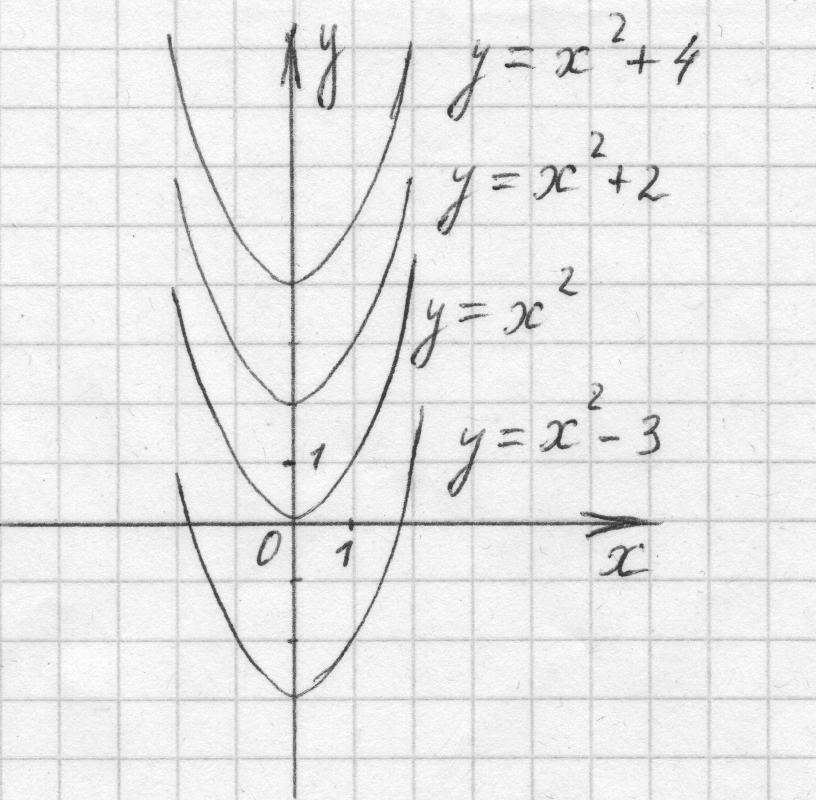 y
y = x² + 4
y = x² + 2
y = x²
y = x² - 3
1
0
1
x